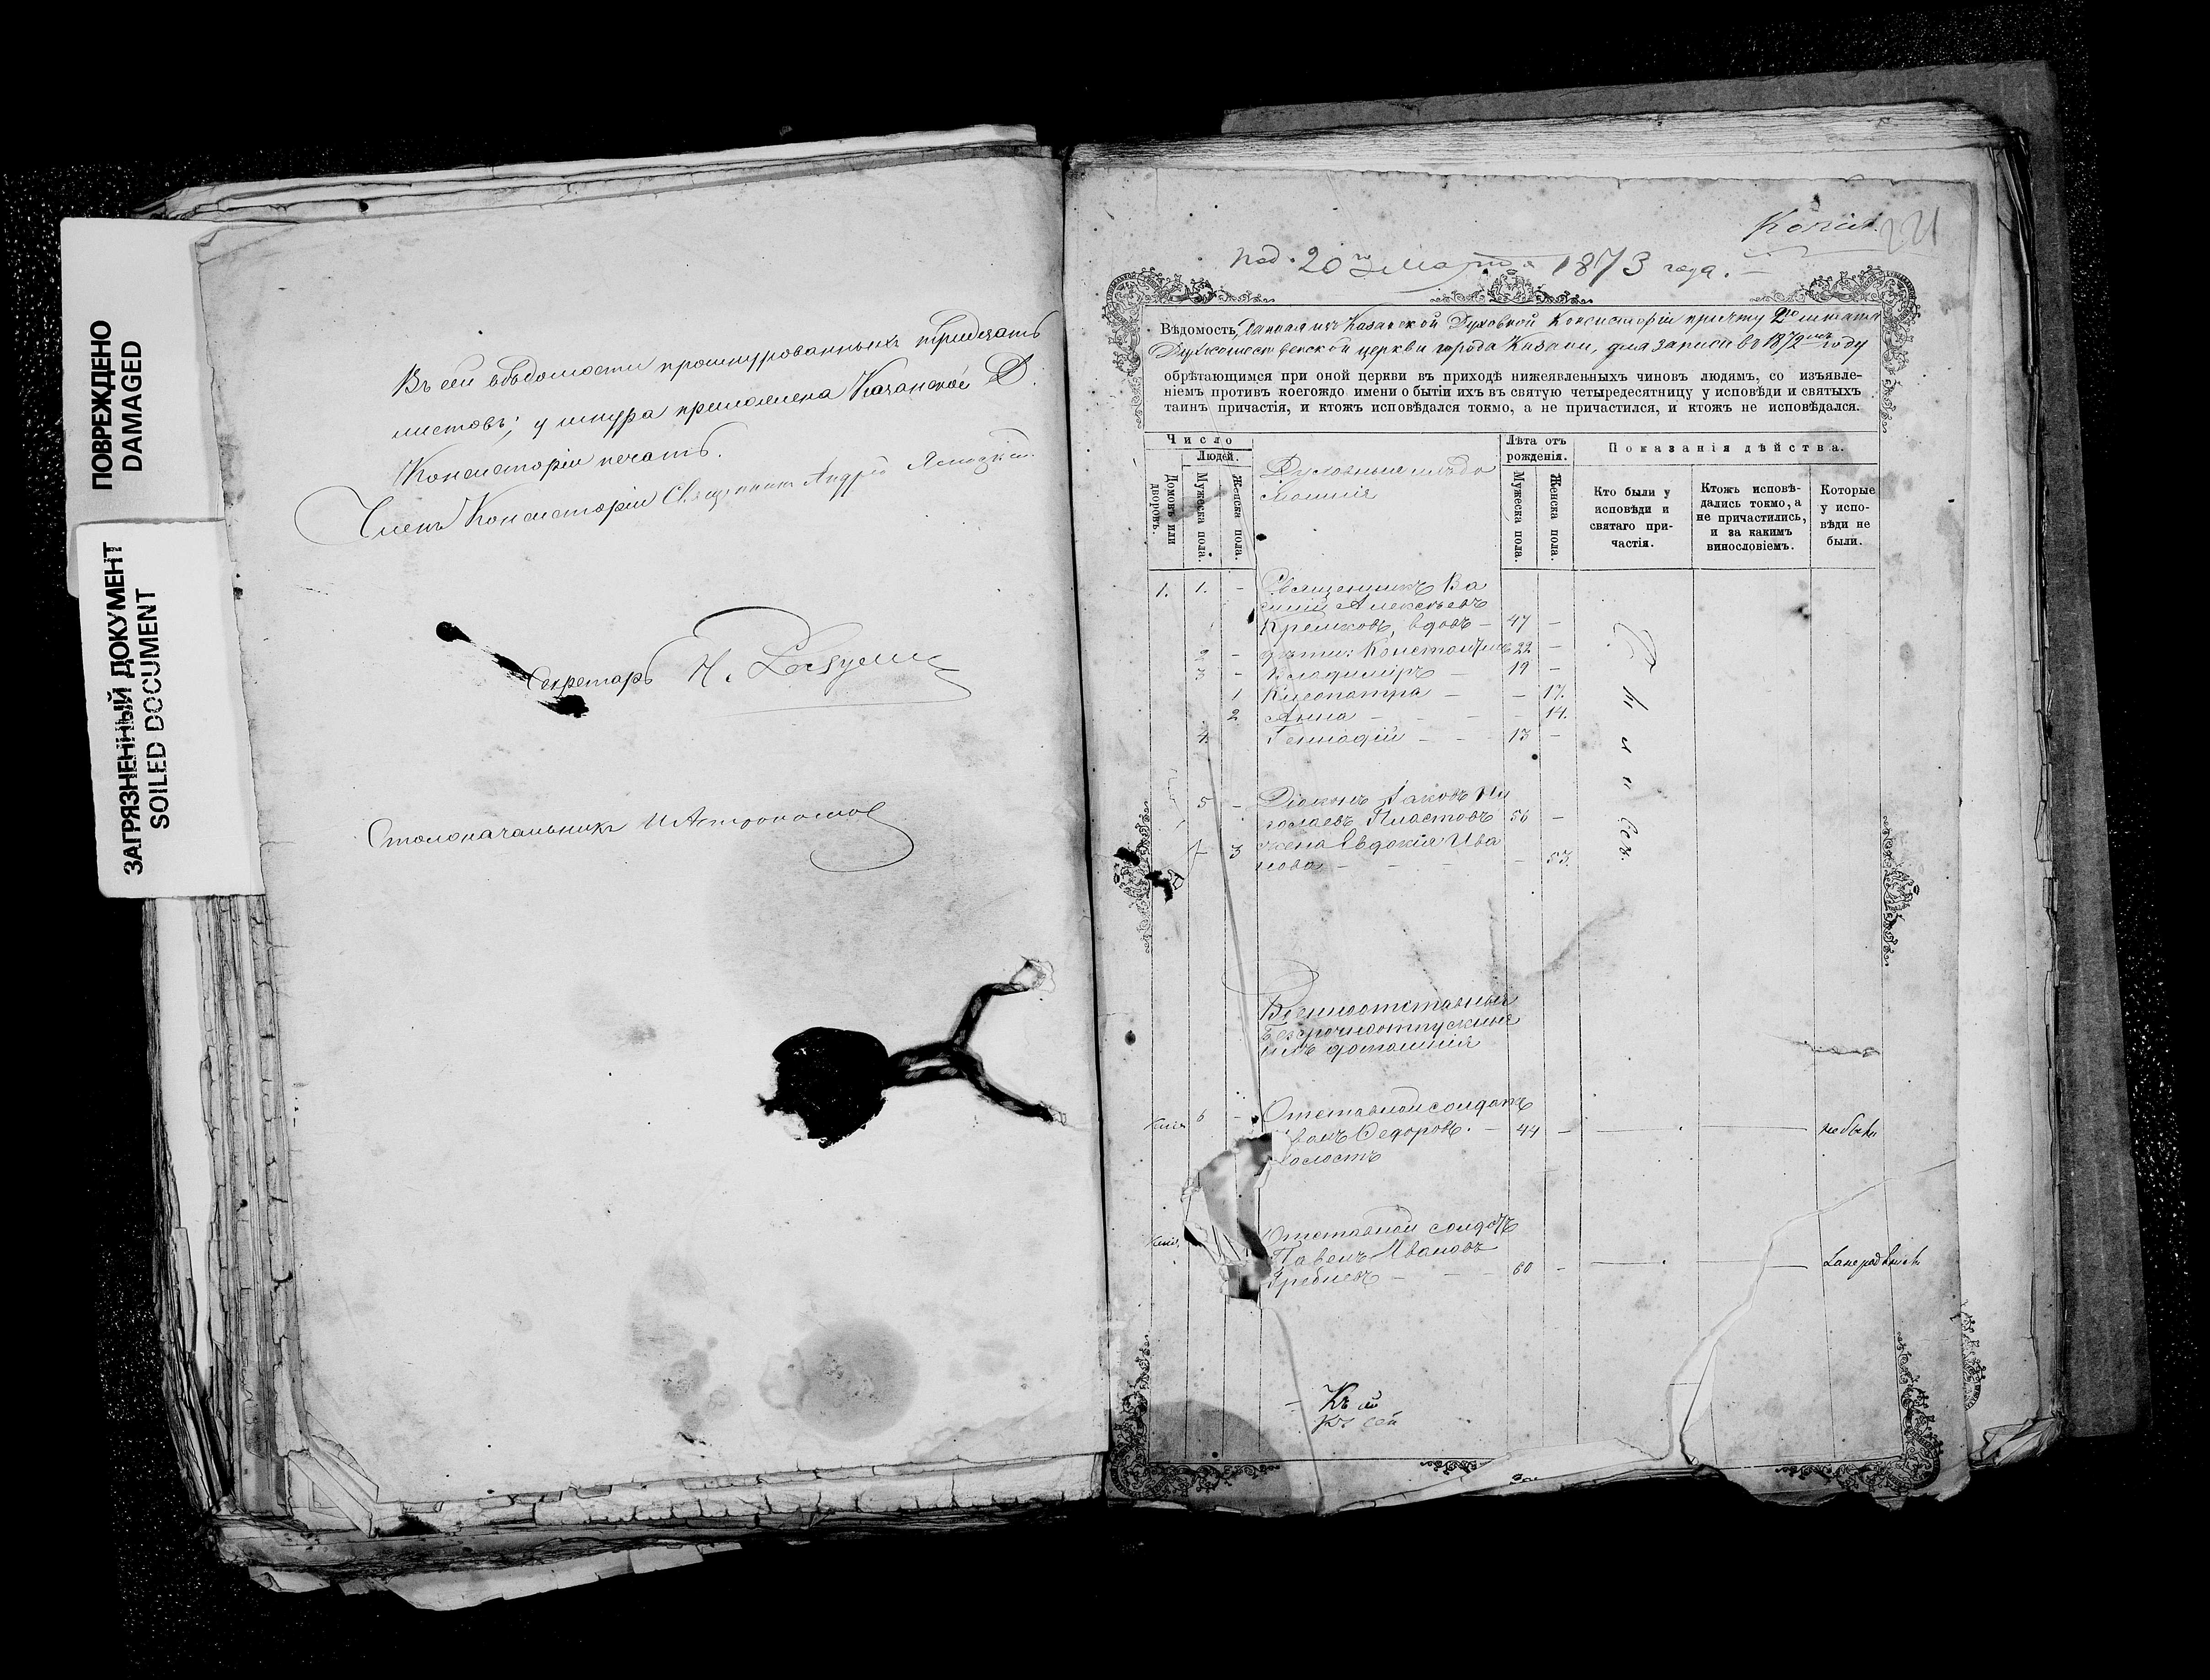 ПОВРЕЖДЕНО
DAMAGED
ЗАГРЯЗНЕННЫЙ ДОКУМЕНТ
SOILED DOCUMENT
Въ сей вѣдомости прошнурованныхъ тридцать
листовъ; у шнура приложена Казанской Д.
Консисторіи печать.
Членъ Консисторіи Священникъ Андрей
Секретарь Н.
Столоначальникъ
Копія
221
Под. 20го Марта 1873 года.
Вѣдомость, данная изъ Казанской Духовной Консисторіи причту 2го штата
церкви города Казани, для записи въ 1872мъ году
обрѣтающимся при оной церкви въ приходѣ нижеявленныхъ чиновъ людямъ, со изъявле-
ніемъ противъ коегождо имени о бытіи ихъ въ святую четыредесятницу у исповѣди и святыхъ
таинъ причастія, и ктожъ исповѣдался токмо, а не причастился, и ктожъ не исповѣдался.
Число
Людей.
Домовъ или дворовъ.
Мужеска пола.
Женска пола.
Духовные и ихъ до
машніе
Лѣта отъ рожденія.
Мужеска пола.
Женска пола.
Показанія дѣйства.
Кто были у исповѣди и святаго при-частія.
Ктожъ исповѣ-дались токмо, а не причастились, и за какимъ винословіемъ.
Которые у испо-вѣди не были.
1. 1. - Священникъ Ва
силій Алексѣевъ
Кремковъ, вдовъ - 47 -
2 - дѣти: Константинъ 22 -
3 - Владиміръ - 19 -
1 Клеопатра - - 17.
2 Анна - - - 14.
4. Геннадій - - 13 -
5 - Діаконъ Іаковъ Ни
колаевъ Пластовъ 56 -
3 жена Евдокія Ива
нова - - - - 53.
Были
Военноотставные
безсрочноотпускные
ихъ домашніе
6 - Отставной солдатъ
Иванъ Ѳедоровъ. - 44 - не былъ
холостъ
Отставной солдатъ
Павелъ Ивановъ
Гребневъ - - 60 -
Къ сей
Къ сей